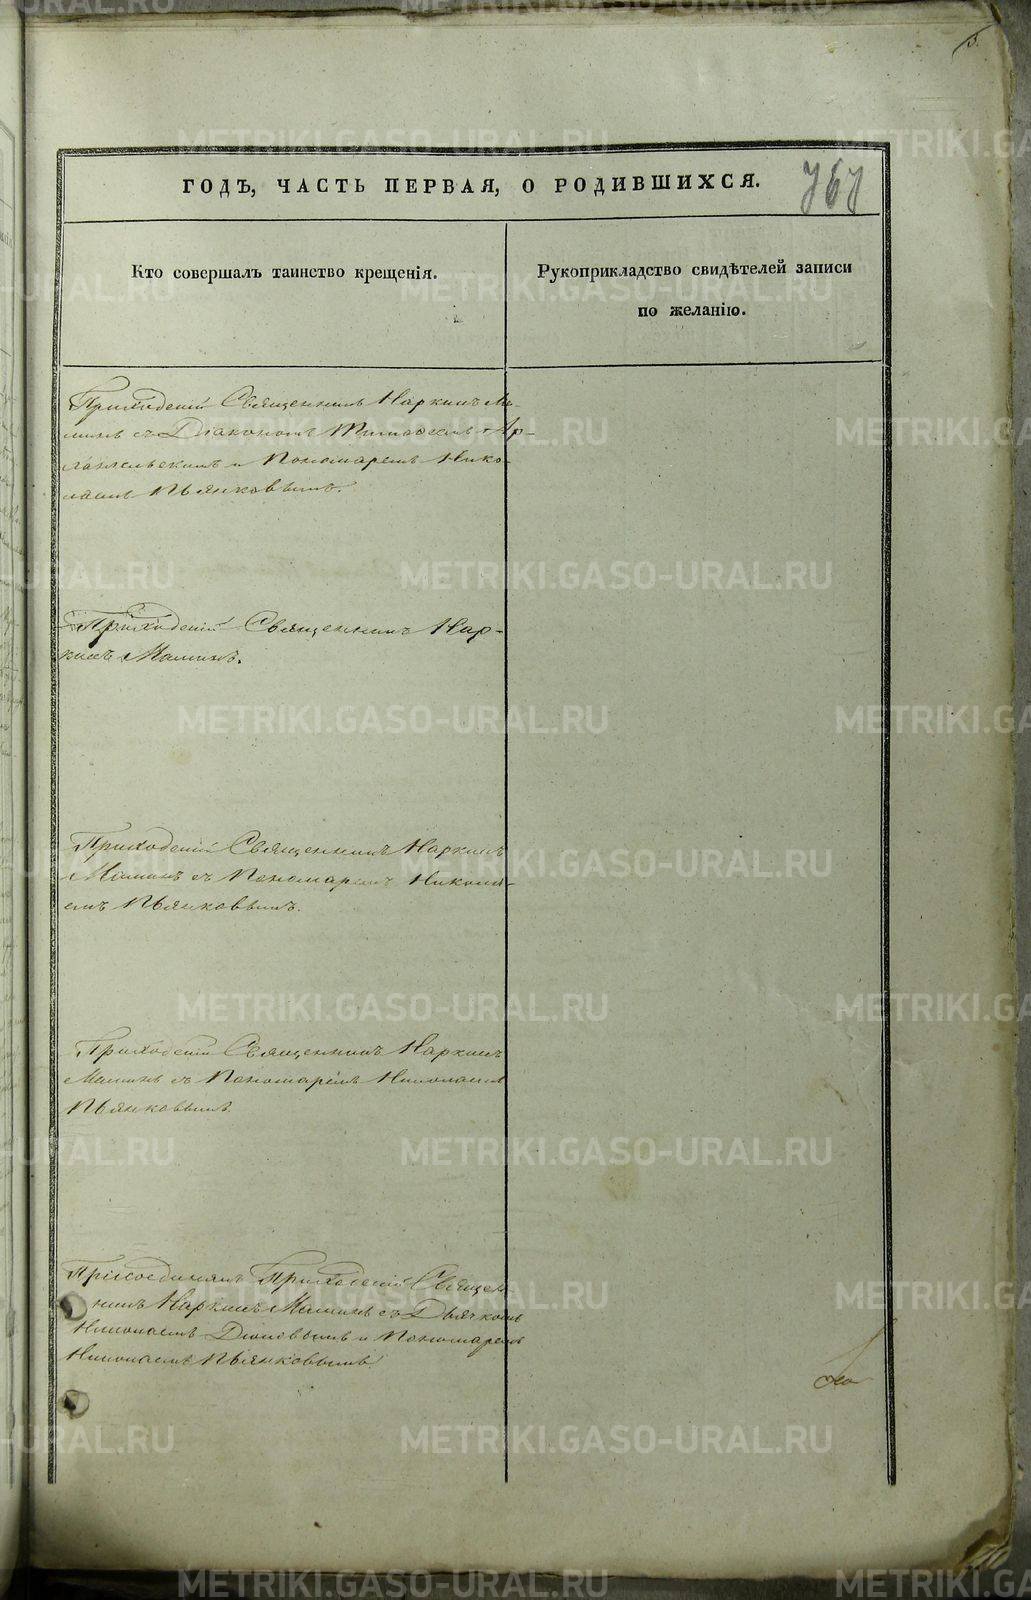 3.
ГОДЪ, ЧАСТЬ ПЕРВАЯ, О РОДИВШИХСЯ.
767
Кто совершалъ таинство крещенія.
Рукоприкладство свидѣтелей записи
по желанію.
Приходскій Священникъ Наркисъ Ма-
минъ съ Діакономъ Тимоѳеемъ Ар-
хангельскимъ и Пономаремъ Нико-
лаемъ Пьянковымъ.
Приходскій Священникъ Нар-
кисъ Маминъ.
Приходскій Священникъ Наркисъ
Маминъ съ Пономаремъ Никола-
емъ Пьянковымъ.
Приходскій Священникъ Наркисъ
Маминъ съ Пономаремъ Николаемъ
Пьянковымъ.
Присоединялъ Приходскій Священ
никъ Наркисъ Маминъ съ Дьячкомъ
Николаемъ Діоновымъ и Пономаремъ
Николаемъ Пьянковымъ.
METRIKI.GASO-URAL.RU